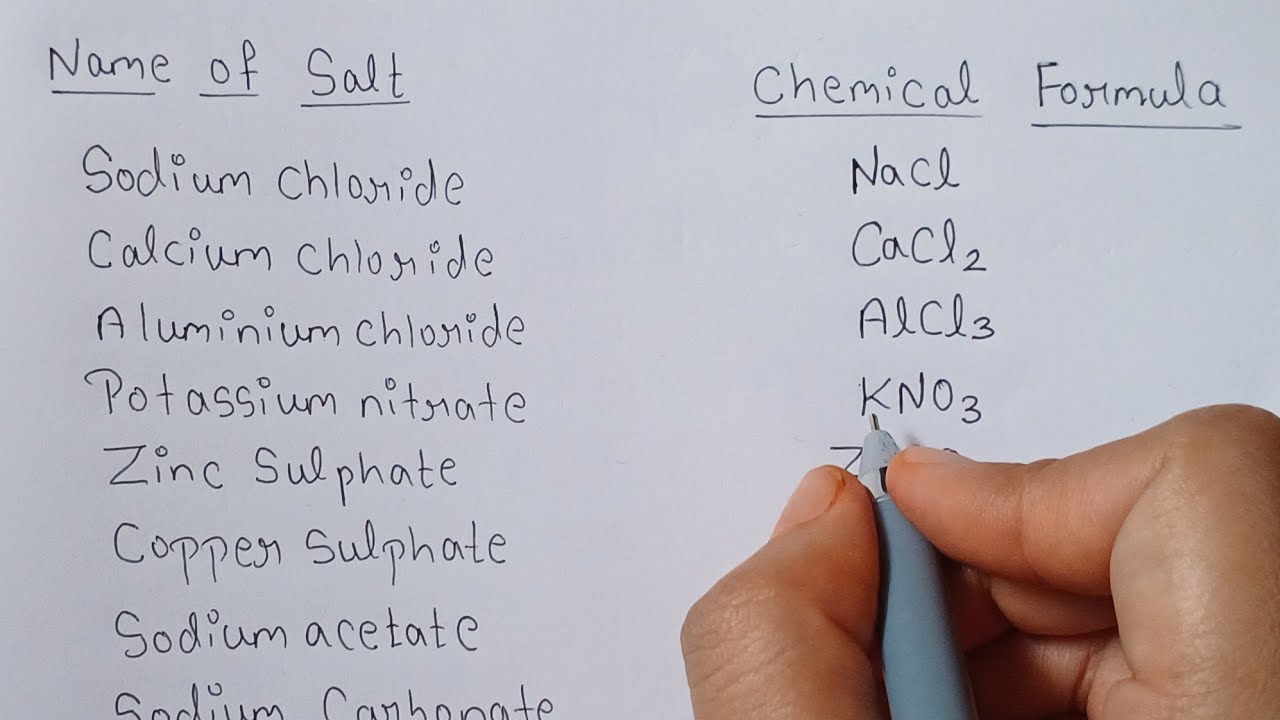 Name of Salt Chemical Formula
Sodium chloride NaCl
Calcium chloride CaCl2
Aluminium chloride AlCl3
Potassium nitrate KNO3
Zinc Sulphate
Copper Sulphate
Sodium acetate
Sodium Carbonate